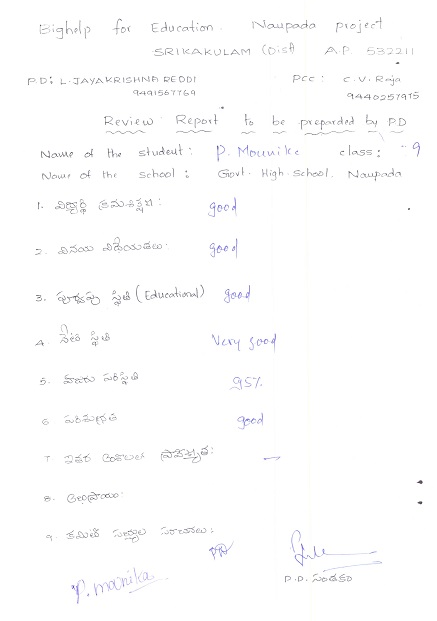 Bighelp for Education. Naupada project
SRIKAKULAM (Dist) A.P. 532211
P.D: L. JAYAKRISHNA REDDI PCC: C.V. Raja
9491567769 9440257975
Review Report to be preparded by P.D
Name of the student: P. Mounike class: 9
Name of the school: Govt. High. School. Naupada
1. విద్యార్థి క్రమశిక్షణ: good
2. వినయ విధేయతలు: good
3. పూర్వపు స్థితి (Educational) good
4. నేటి స్థితి Very good
5. హాజరు పరిస్థితి 95%
6. పరిశుభ్రత good
7. ఇతర
8. అభిప్రాయం:
9. కమిటీ సభ్యుల సూచనలు:
P. mounika
P.D. సంతకం